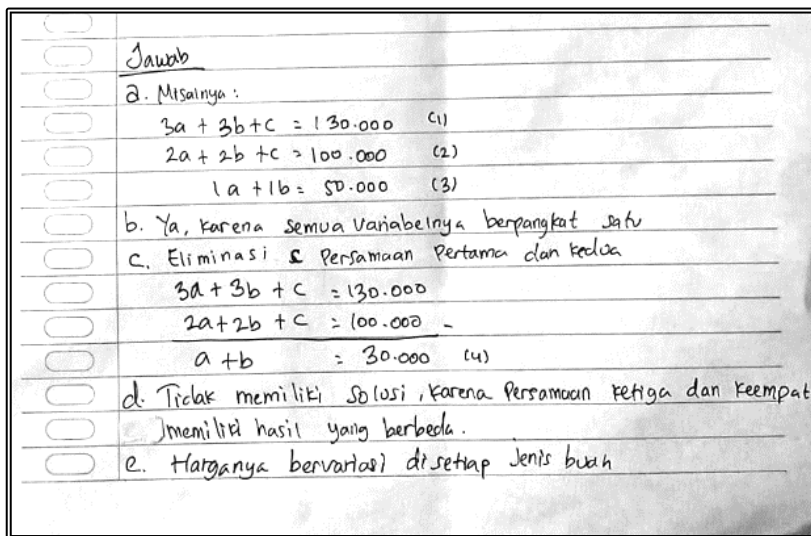 Jawab
a. Misalnya :
3a + 3b + c = 130.000 (1)
2a + 2b + c = 100.000 (2)
1a + 1b = 50.000 (3)
b. Ya, karena semua variabelnya berpangkat satu
c. Eliminasi c Persamaan Pertama dan kedua
3a + 3b + c = 130.000
2a + 2b + c = 100.000 -
a + b = 30.000 (4)
d. Tidak memiliki solusi, karena Persamaan ketiga dan keempat
memiliki hasil yang berbeda.
e. Harganya bervariasi disetiap jenis buah